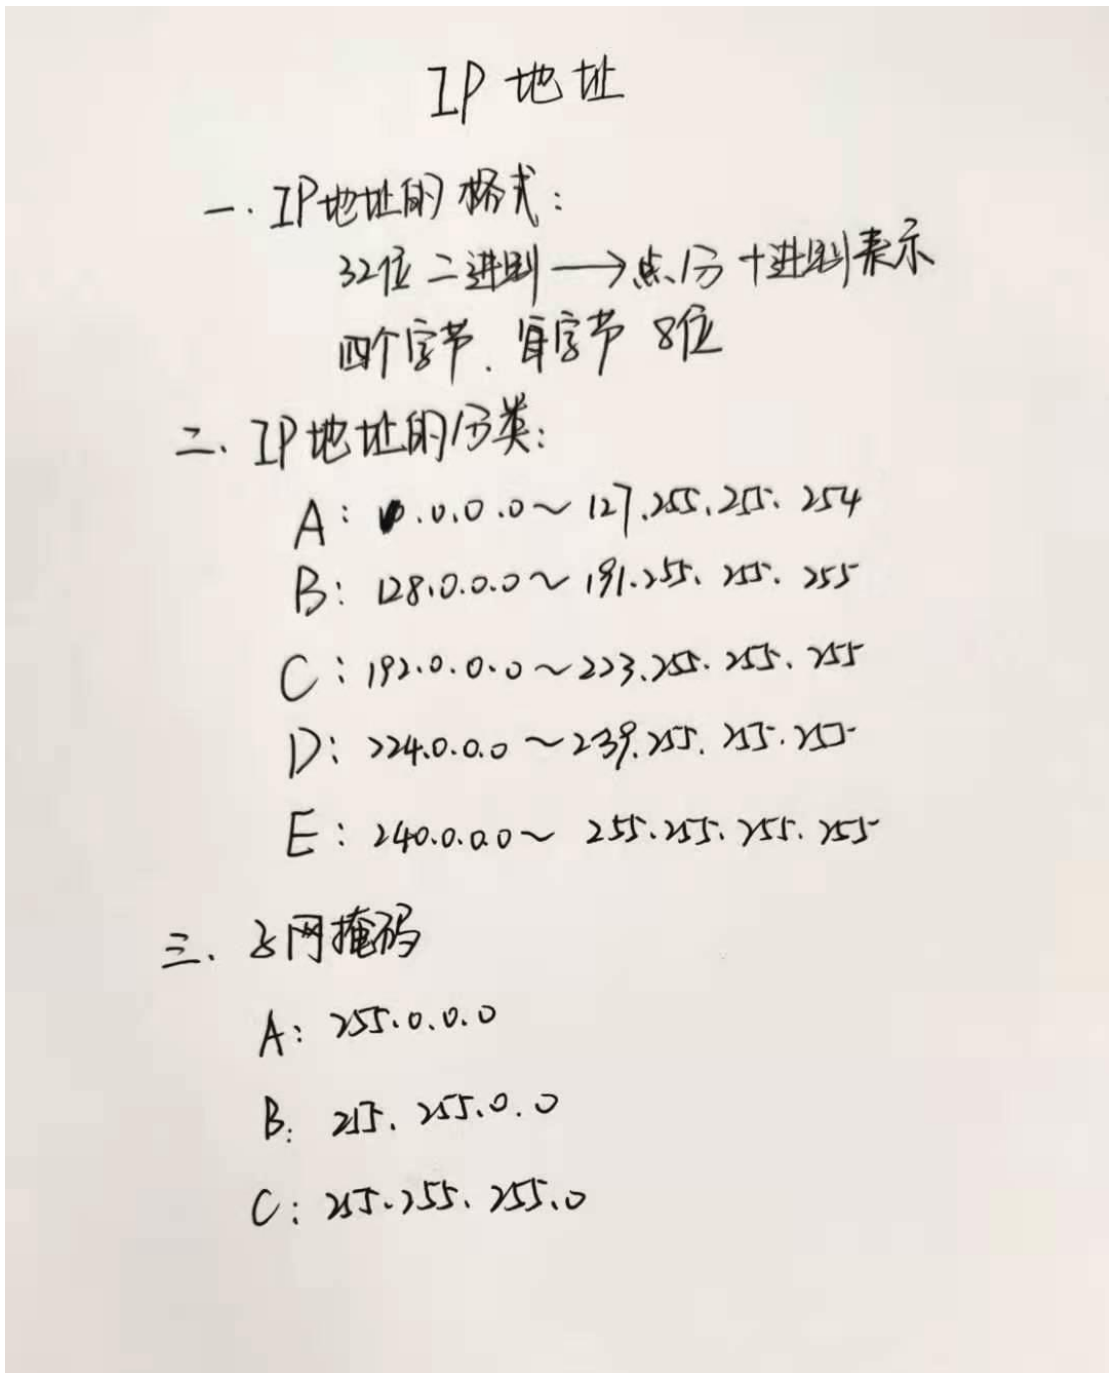 IP 地址
一. IP地址的格式:
32位 二进制 → 点分十进制表示
四个字节. 每字节 8位
二. IP地址的分类:
A: 0.0.0.0～127.255.255.254
B: 128.0.0.0～191.255.255.255
C: 192.0.0.0～223.255.255.255
D: 224.0.0.0～239.255.255.255
E: 240.0.0.0～255.255.255.255
三. 子网掩码
A: 255.0.0.0
B: 255.255.0.0
C: 255.255.255.0